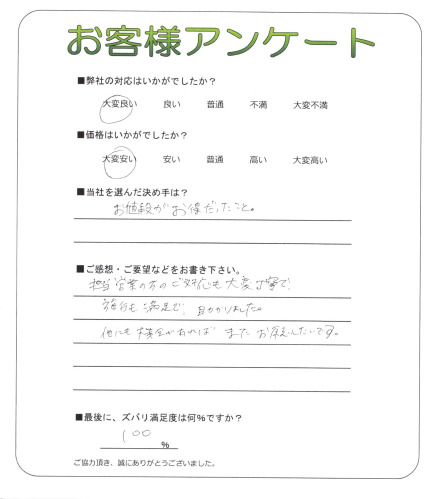 お客様アンケート
■弊社の対応はいかがでしたか？
大変良い 良い 普通 不満 大変不満
■価格はいかがでしたか？
大変安い 安い 普通 高い 大変高い
■当社を選んだ決め手は？
お値段がお得だったこと。
■ご感想・ご要望などをお書き下さい。
担当営業の方のご対応も大変丁寧で
施行も満足で、助かりました。
他にも機会があれば またお願いしたいです。
■最後に、ズバリ満足度は何%ですか？
100
%
ご協力頂き、誠にありがとうございました。